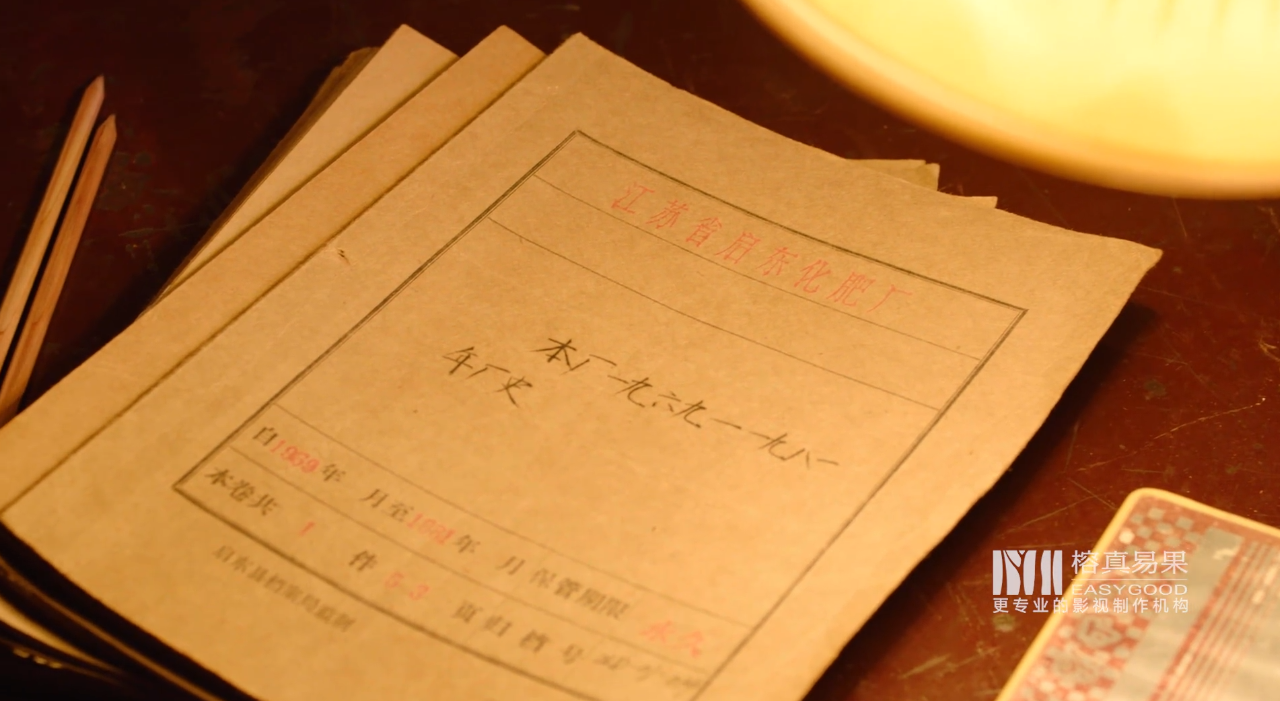 江苏省启东化肥厂
本厂一九六九—一九八一
年厂史
自1969年 月至1981年 月保管期限 永久
本卷共 1 件 53 页归档号
启东县档案局监制
榕真易果
EASYGOOD
更专业的影视制作机构